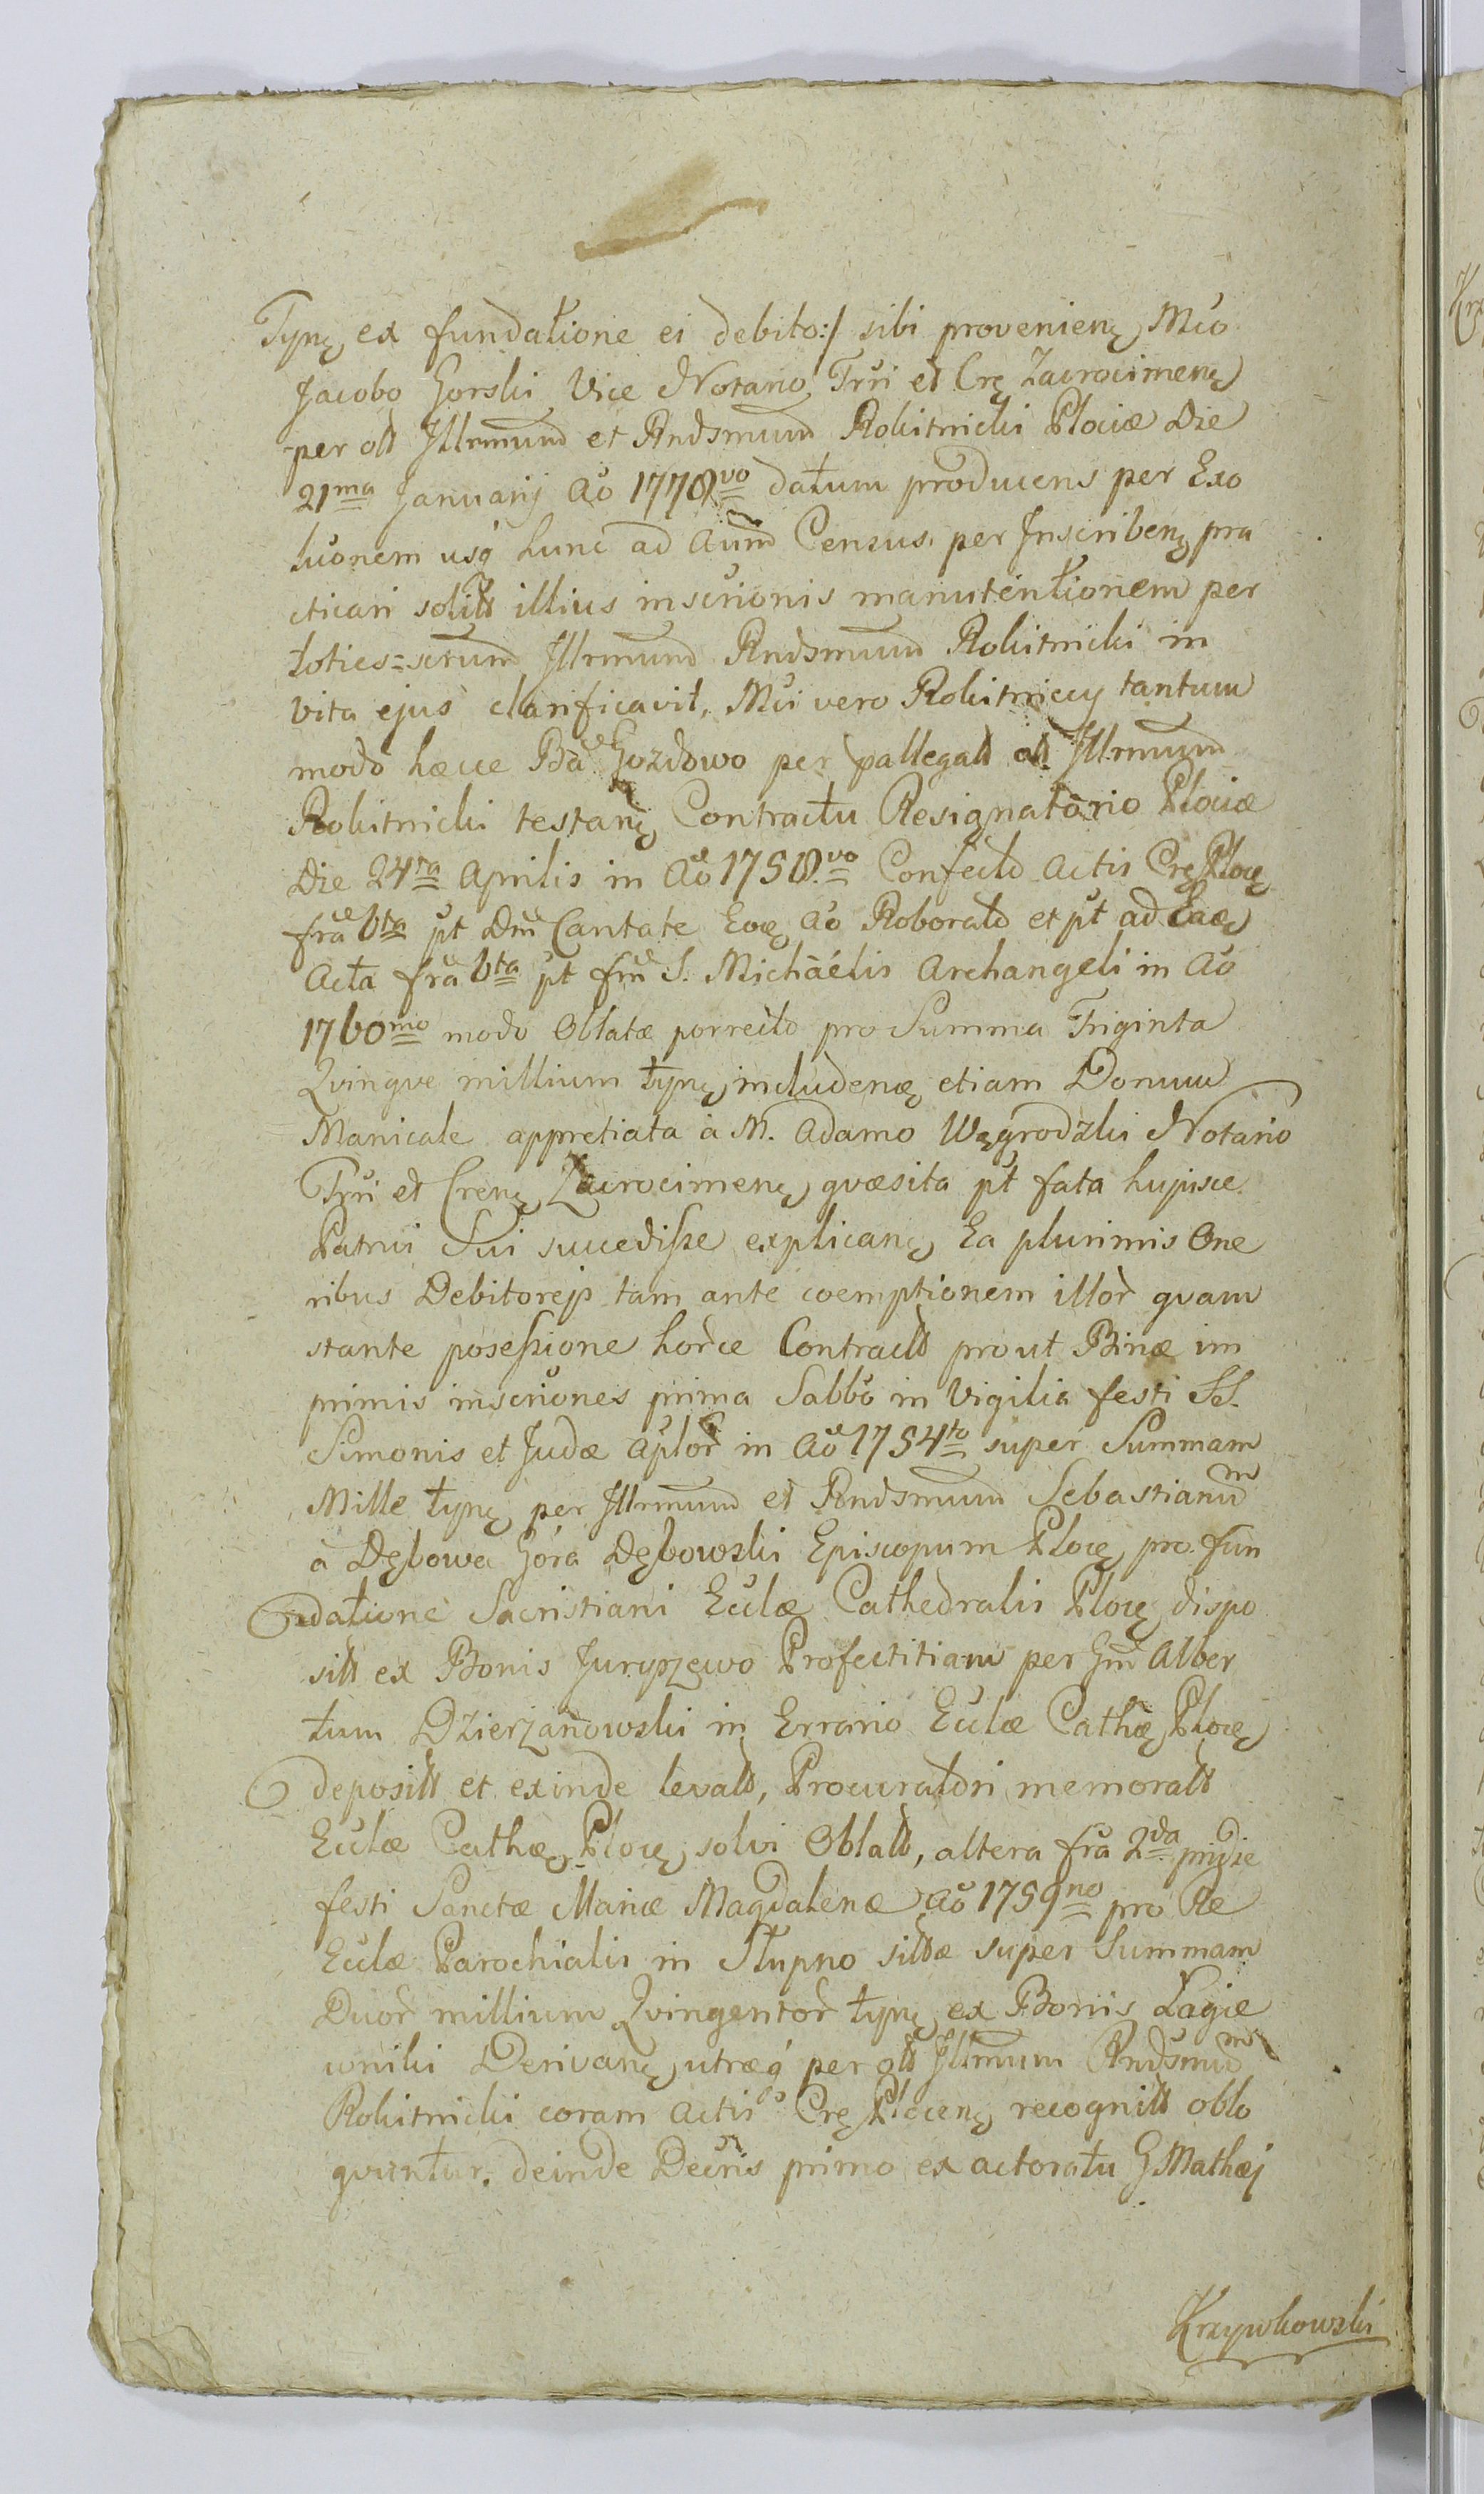 Tynę ex fundatione ei debito:/ sibi provenienę Mco
Jacobo Gorski Vice Notario Trri et Crę Zacrocimenę
per olt Illrmum et Rndsmum Rokitnicki Plociæ Die
21ma Januarij Ao 1778vo datum producens per Exo
luonem usq hunc ad Aum Census per Inscribenę pra
cticari solitt illius inscrionis manutentionem per
toties=scrum Illrmum Rndsmum Rokitnicki in
vita ejus clarificavit, Mci vero Rokitniccy tantum
modo hæcce Ba Gozdowo per pallegatt olt Illrmum
Rokitnicki testanę Contractu Resignatorio Plociæ
Die 24ta Aprilis in Ao 1758.vo Confecto Actis Crę Plocę
fra 6ta pt Dm Cantate Eoę Ao Roborato et pt ad Eaę
Acta fra 6ta pt fm S. Michaélis Archangeli in Ao
1760mo modo Oblatæ porrecto pro Summa Triginta
Qvinqve millium tynę, includenę etiam Donum
Manicale appretiata à M. Adamo Węgrodzki Notario
Trri et Crenę Zacrocimenę qvæsita pt fata hujusce
Patrui Sui succedisse explicanę Ea plurimis One
ribus Debitorejs tam ante coemptionem illor qvam
stante posessione horce Contractt prout Binæ im
primis inscriones prima Sabbo in Vigilia festi SS.
Simonis et Judæ Aplor in Ao 1754to super Summam
Mille tynę per Illrmum et Rndsmum Sebastianum
à Dębowa Góra Dębowski Episcopum Plocę pro fun
datione Sacristiani Ecclæ Cathedralis Plocę dispo
sitt ex Bonis Juryszewo Profectitiam per Gm Alber
tum Dzierzanowski in Errario Ecclæ Cathæ Plocę
depositt et exinde levatt, Procuratori memoratt
Ecclæ Cathæ Plocę solvi Oblatt, altera fra 2da pridie
festi Sanctæ Mariæ Magdalenæ Ao 1759no pro Re
Ecclæ Parochialis in Słupno sittæ super Summam
Duor millium Qvingentor tynę ex Bonis Łagie
wniki Derivanę utræq per olt Illrmum Rndsmum
Rokitnicki coram Actis Crę Plocenę recognitt oblo
qvuntur. deinde Decris primo ex actoratu G Mathæj
Krzywkowski